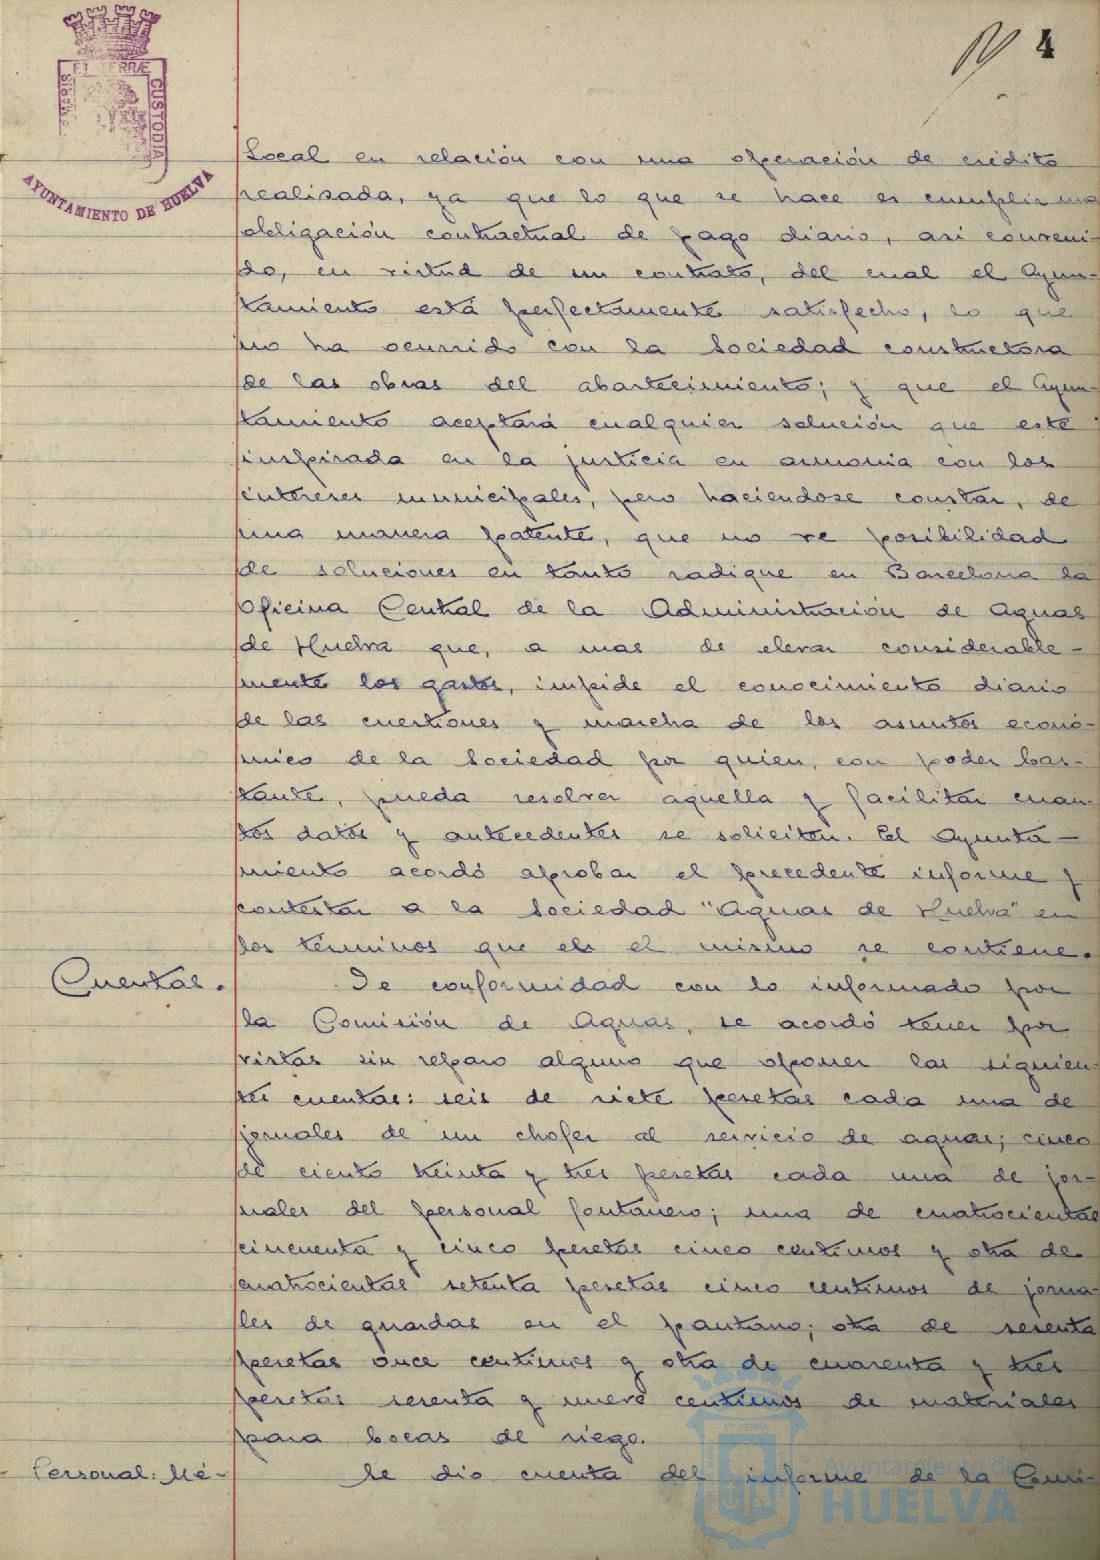 4
ET TERRÆ
CUSTODIA
AYUNTAMIENTO DE HUELVA
Local en relación con una operación de crédito
realizada, ya que lo que se hace es cumplir una
obligación contractual de pago diario, asi conveni-
do, en virtud de un contrato, del cual el Ayun-
tamiento está perfectamente satisfecho, lo que
no ha ocurrido con la Sociedad constructora
de las obras del abastecimiento; y que el Ayun-
tamiento aceptará cualquier solución que esté
inspirada en la justicia en armonia con los
intereses municipales, pero haciendose constar, de
una manera patente, que no ve posibilidad
de soluciones en tanto radique en Barcelona la
Oficina Central de la Administración de Aguas
de Huelva que, a mas de elevar considerable-
mente los gastos, impide el conocimiento diario
de las cuestiones y marcha de los asuntos econó-
mico de la Sociedad por quien, con poder bas-
tante, pueda resolver aquella y facilitar cuan-
tos datos y antecedentes se soliciten. El Ayunta-
miento acordó aprobar el precedente informe y
contestar a la Sociedad "Aguas de Huelva" en
los términos que en el mismo se contiene.
Cuentas. De conformidad con lo informado por
la Comisión de Aguas, se acordó tener por
vistas sin reparo alguno que oponer las siguien-
tes cuentas: seis de siete pesetas cada una de
jornales de un chofer al servicio de aguas; cinco
de ciento treinta y tres pesetas cada una de jor-
nales del personal fontanero; una de cuatrocientas
cincuenta y cinco pesetas cinco centimos y otra de
cuatrocientas setenta pesetas cinco centimos de jorna-
les de guardas en el pantano; otra de sesenta
pesetas once centimos y otra de cuarenta y tres
pesetas sesenta y nueve centimos de materiales
para bocas de riego.
Personal: Mé- Se dio cuenta del informe de la Comi-
Ayuntamiento de
HUELVA